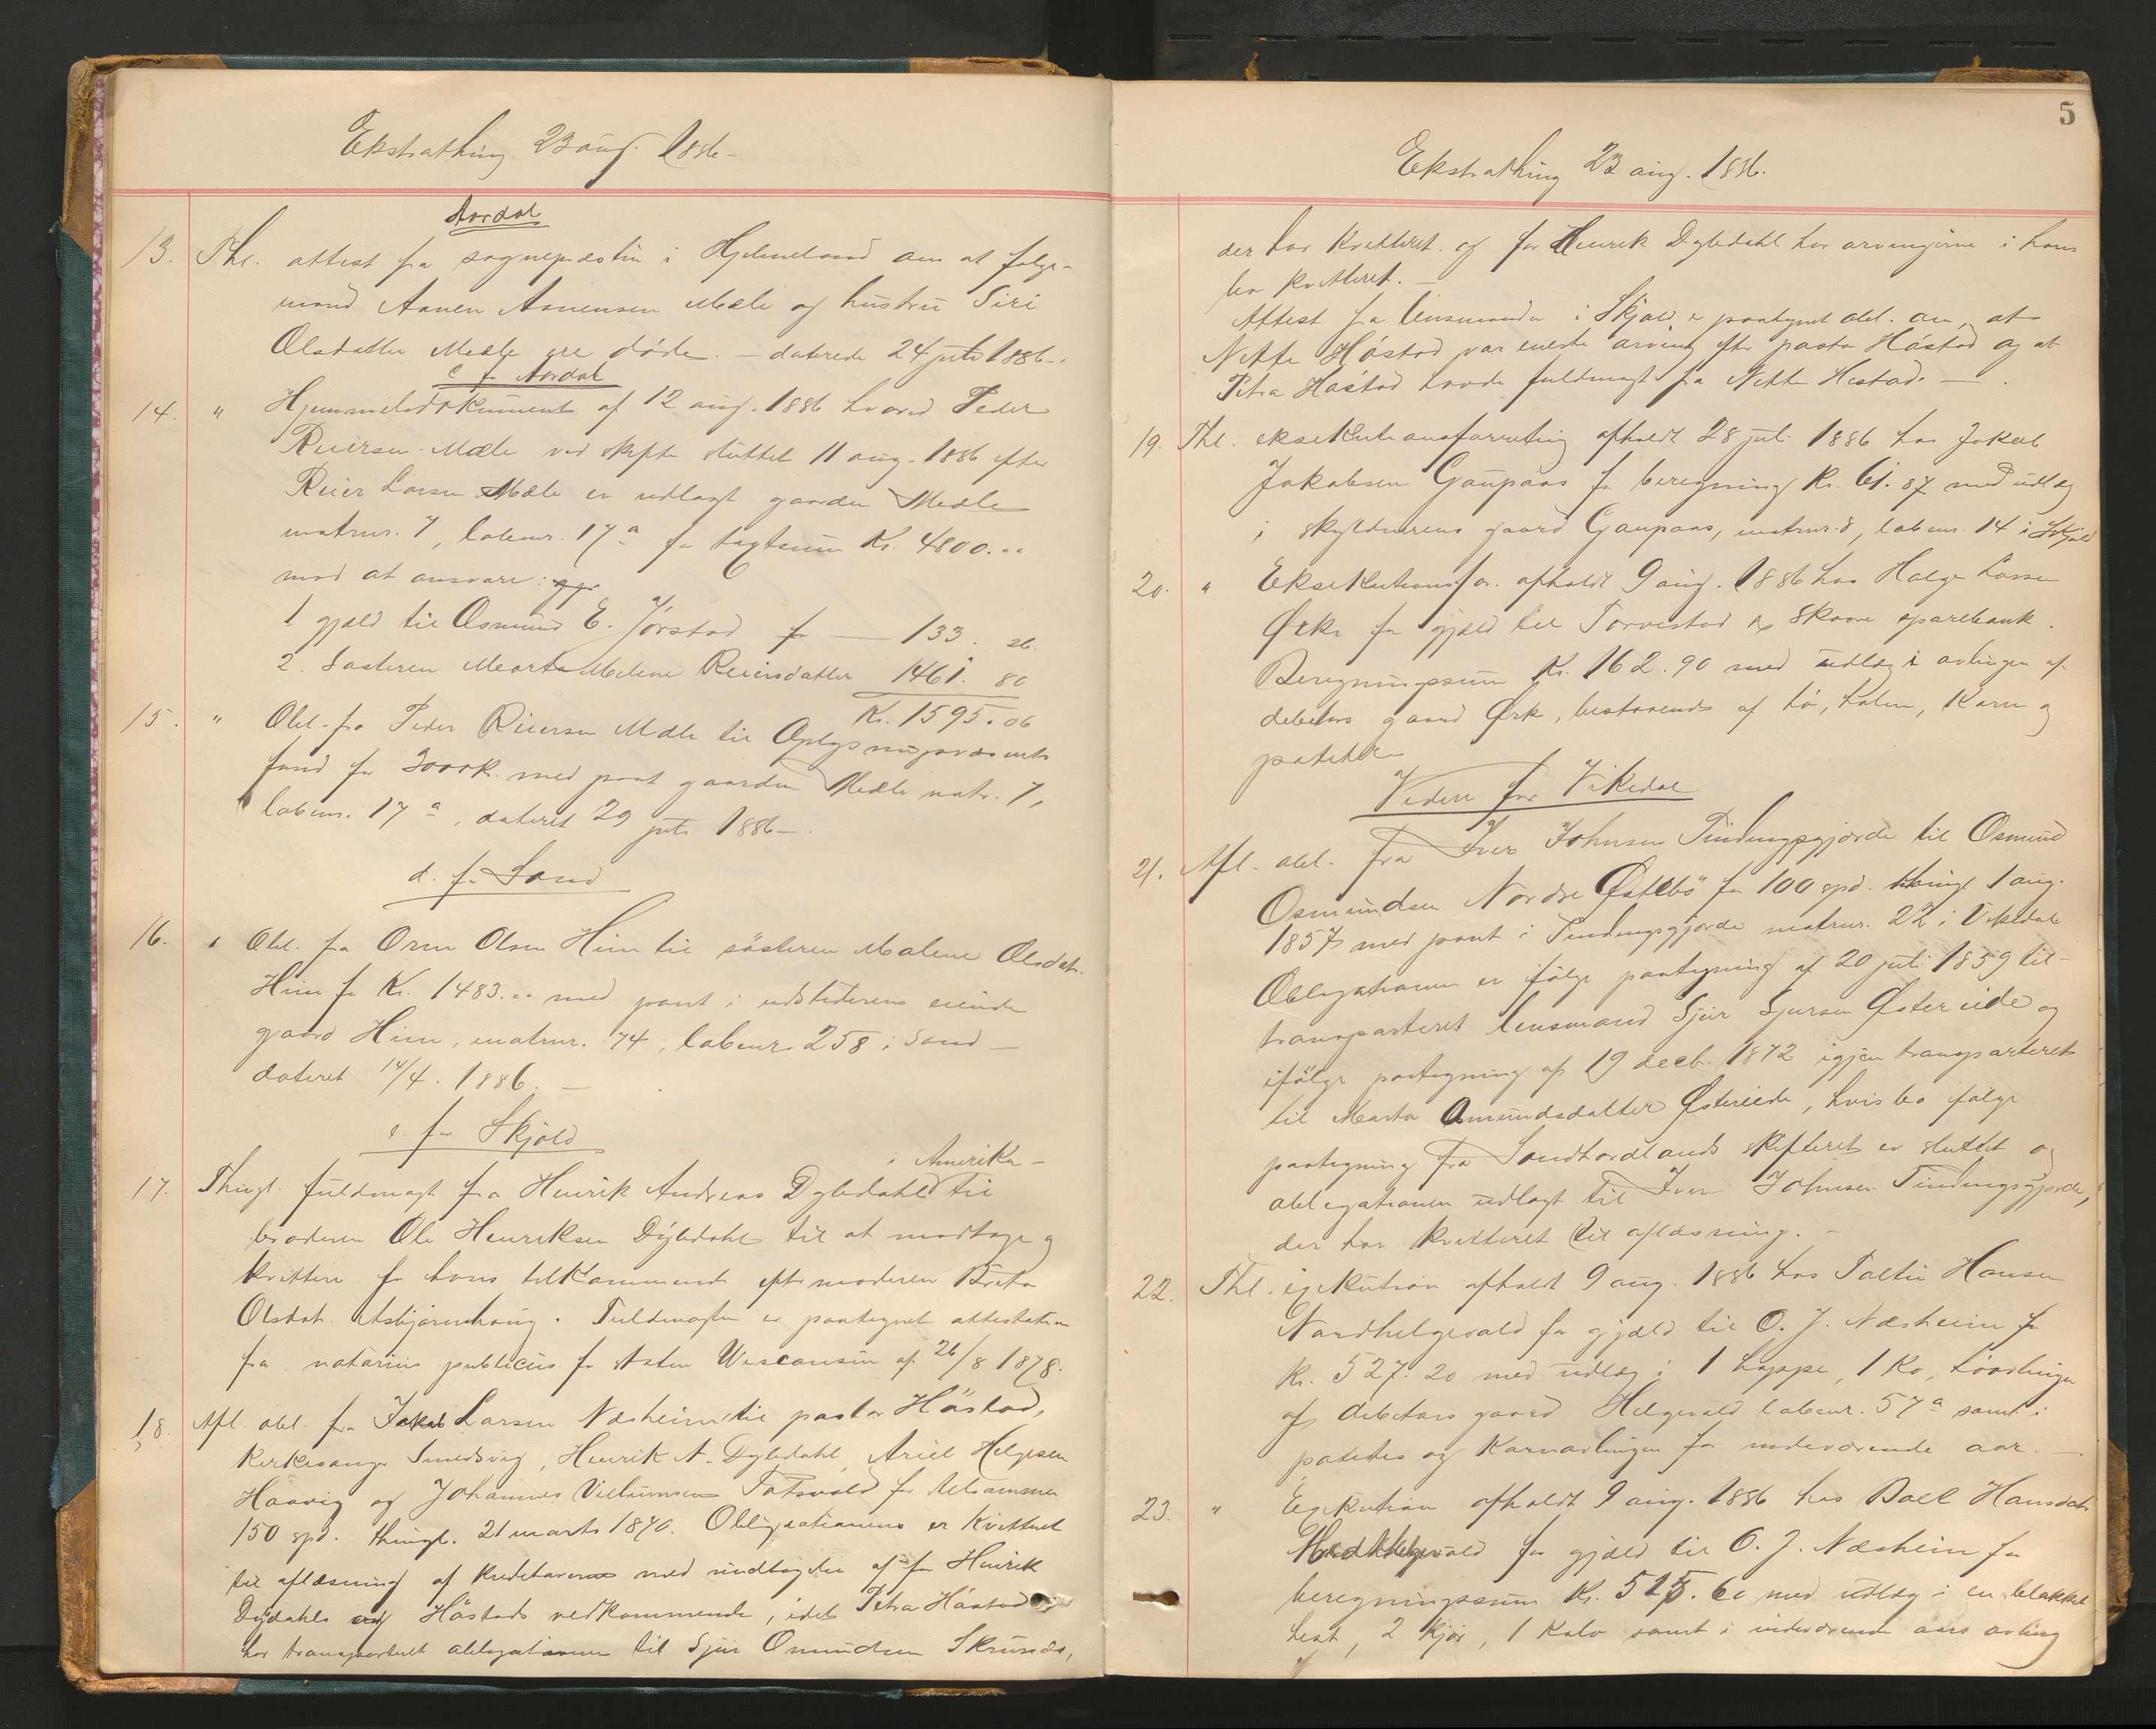 Ekstrathing 23 aug. 1886 –
Aardal
13. Thl. attest fra sognepresten i Hjelmeland om at følge-
mand Aanen Aanensen Mæle og hustru Siri
Olsdatter Mæle ere døde. – daterede 24 juli 1886 –.
c f. Aardal
14. " Hjemmelsdokument af 12 aug. 1886 hvorved Peder
Reiersen Mæle ved skifte sluttet 11 aug. 1886 efter
Reier Larsen Mæle er udlagt gaarden Mæle
matrnr. 7, løbenr. 17a for taxtsum Kr. 4800. "
mod at ansvare:
1 gjæld til Osmund E. Jørstad for — 133. 26.
2. Søsteren Marta Malene Reiersdatter 1461. 80
Kr. 1595. 06
15. " Obl. fra Peder Reiersen Mæle til Oplysningsvæsenets
fond for 3000 k. med pant gaarden Mæle matr. 7,
løbenr. 17a, dateret 29 juli 1886 –.
d. for Sand
16. " Obl. fra Orm Olsen Hiim til søsteren Malene Olsdat.
Hiim for Kr. 1483. " med pant i udstederens eiende
gaard Hiim, matrnr. 74, løbenr. 258 i Sand –
dateret 14/4. 1886. –
e. for Skjold
i Amerika –
17. Thingl. fuldmagt fra Henrik Andreas Dybdahl til
broderen Ole Henriksen Dybdahl til at modtage og
kvittere for hans tilkommende efter moderen Berta
Olsdat. Asbjørnhaug. Fuldmagten er paategnet attestation
fra notarius publicus for Wisconsin af 26/8 1878.
18. Afl. obl. fra Jakob Larsen Næsheim til pastor Håstad,
kirkesanger Smedsvig, Henrik A. Dybdahl, Ariel Helgesen
Haavig og Johannes Villumsen for tilsammen
150 spd. thingl. 21 marts 1870. Obligationen er kvitteret
til aflæsning af kreditorerne med undtagelse af for Henrik
Dydahls og Håstads vedkommende, idet Petra Håstad
har transporteret obligationen til Sjur Omundsen Skrunes,
5
Ekstrathing 23 aug. 1886.
der har kvitteret og for Henrik Dybdahl har arvingerne i hans
bo kvitteret. –
Attest fra lensmanden i Skjold er paategnet obl. om, at
Nette Håstad var eneste arving efter pastor Håstad og at
Petra Håstad havde fuldmagt fra Nette Hestad. — .
19. Thl. eksekutionsforretning afholdt 28 juli 1886 hos Jakob
Jakobsen Gaupaas for beregning Kr. 61. 87 med udlæg
i skyldnerens gaard Gaupaas, matrnr. 8, løbenr. 14 i Skjold
20. " Eksekutionsfor. afholdt 9 aug. 1886 hos Helge Larsen
Ørke for gjæld til Torvestad og Skaare sparebank.
Beregningssum Kr. 162. 90 med udlæg i avlingen af
debitors gaard Ørk, bestaaende af hø, halm, korn og
poteter
Videre for Vikedal
21. Afl. obl. fra Iver Johnsen Tindingsgjørde til Osmund
Osmundsen Nordre Østebø for 100 spd. thingl. 1 aug.
1857 med pant i Tindingsgjørde matrnr. 22 i Vikedal
Obligationen er ifølge paategning af 20 juli 1859 til-
transporteret lensmand Sjur Sjursen Østereide og
ifølge paategning af 19 decb. 1872 igjen transporteret
til Marta Omundsdatter Østereide, hvis bo ifølge
paategning fra Søndhordlands skifteret er sluttet og
obligationen udlagt til Iver Johnsen Tindingsgjørde,
der har kvitteret til aflæsning. –
22. Thl. exekution afholdt 9 aug. 1886 hos Hansen
Nordhelgevold for gjæld til O. J. Næsheim for
Kr. 527. 20 med udlæg i 1 hoppe, 1 ko, høavlingen
af debitors gaard Helgevold løbenr. 57a samt i
potetes og kornavlingen for indeværende aar. –
23. " Exekution afholdt 9 aug. 1886 hos Boel Hansdat.
for gjæld til O. J. Næsheim for
beregningssum Kr. 515. 60 med udlæg i en blakket
hest, 2 kjør, 1 kalv samt i indeværende aars avling